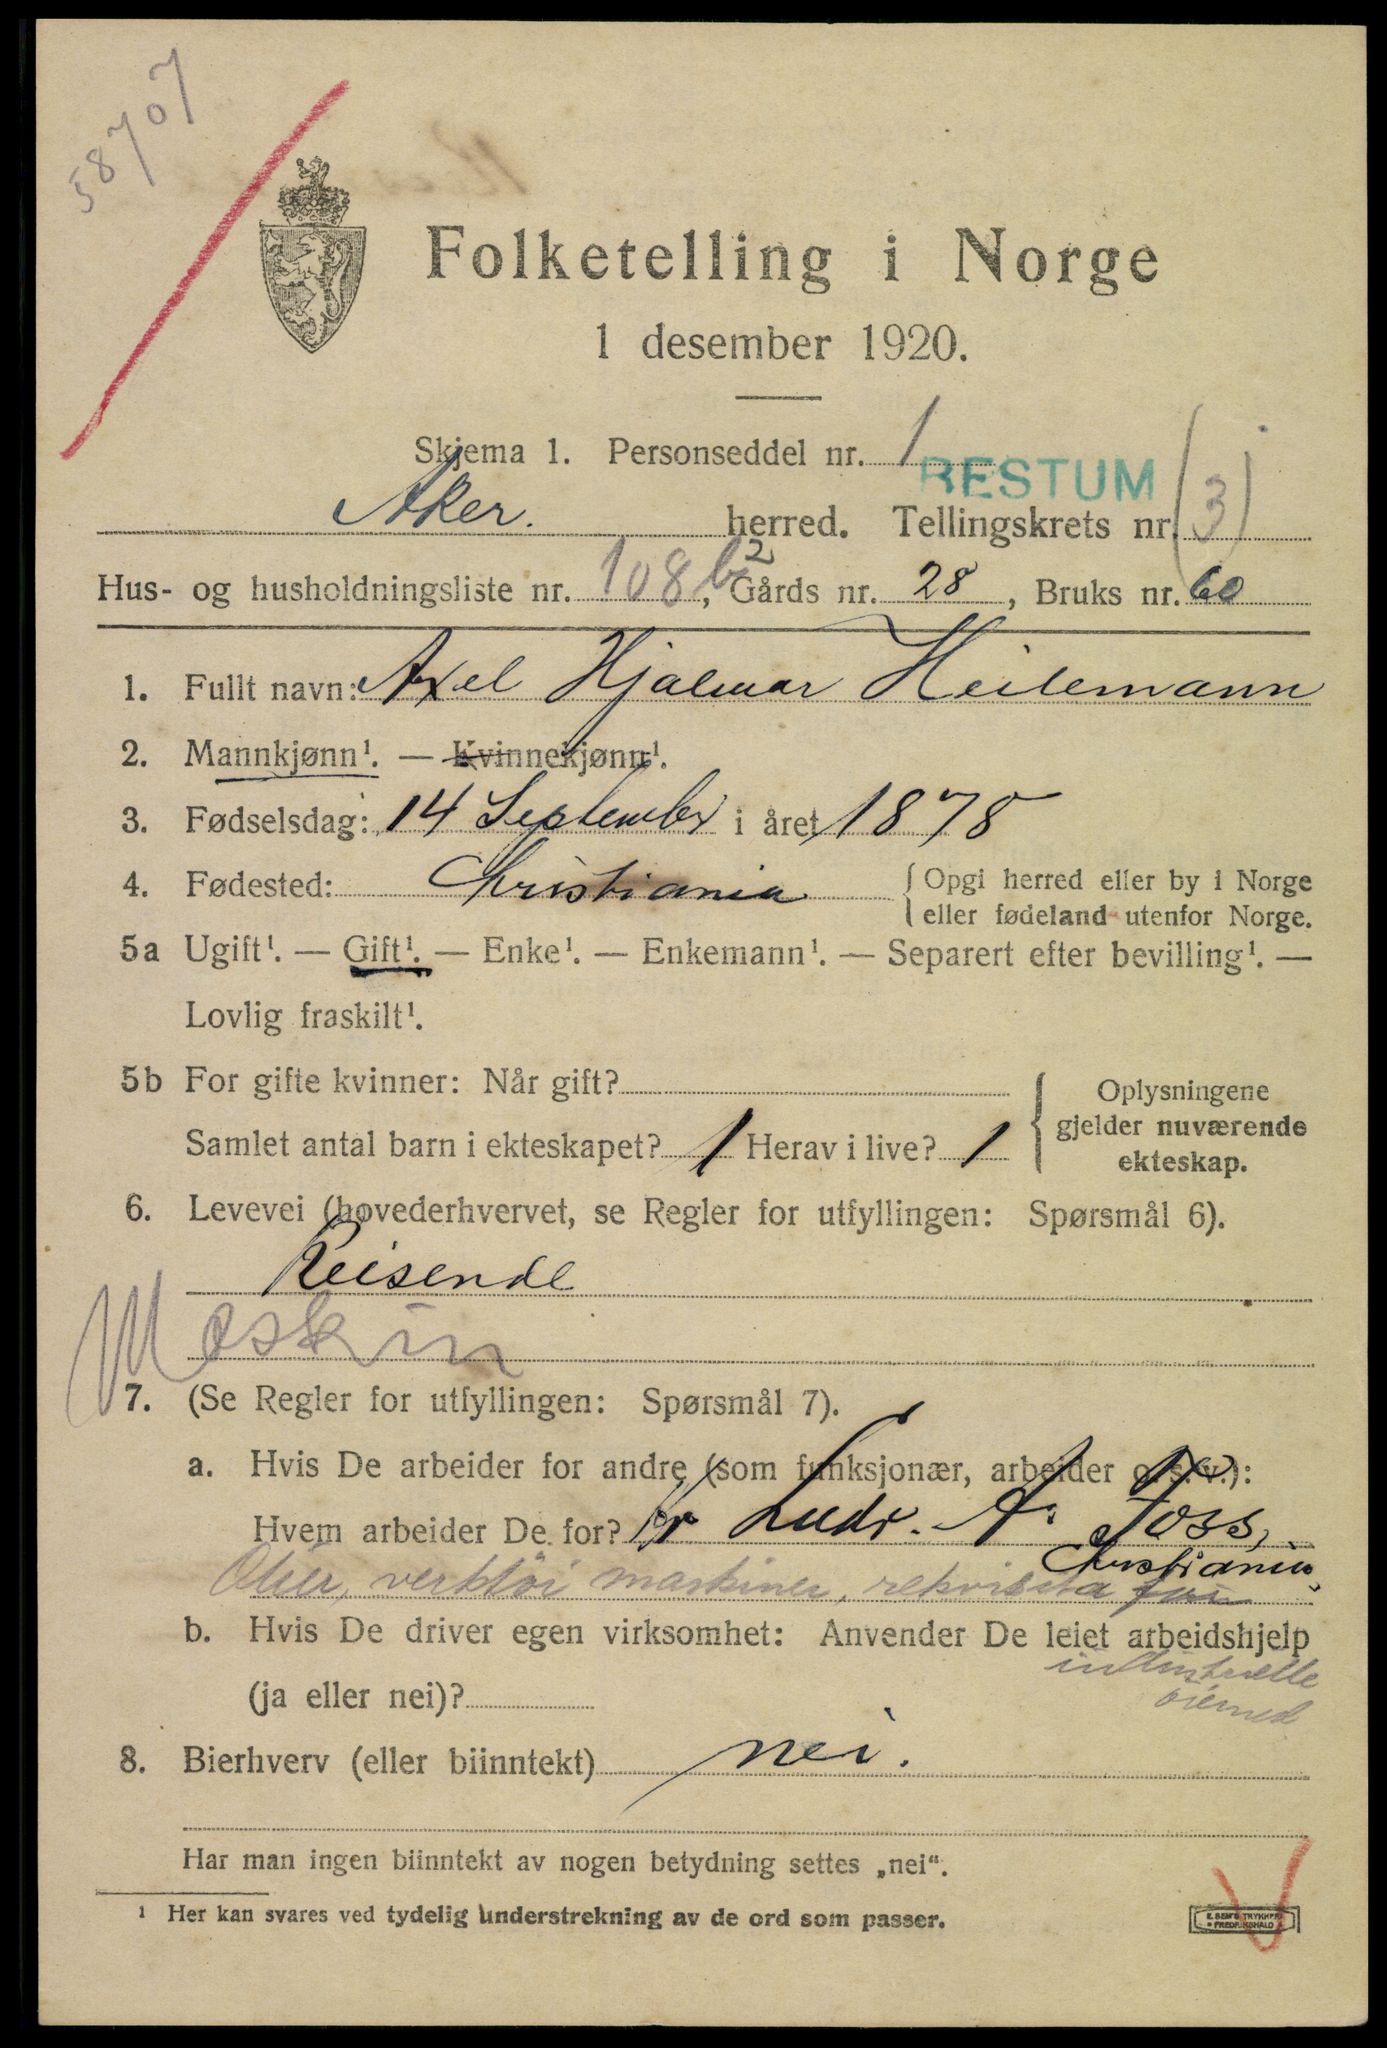 58707
Folketelling i Norge
1 desember 1920.
Skjema 1. Personseddel nr. 1
RESTUM
Aker. herred. Tellingskrets nr. (3)
Hus- og husholdningsliste nr. 108 b2, Gårds nr. 28, Bruks nr. 60
1. Fullt navn: Axel Hjalmar Heilemann
2. Mannkjønn¹. — Kvinnekjønn¹.
3. Fødselsdag: 14 September i året 1878
4. Fødested: Christiania { Opgi herred eller by i Norge
eller fødeland utenfor Norge.
5a Ugift¹. — Gift¹. — Enke¹. — Enkemann¹. — Separert efter bevilling¹. —
Lovlig fraskilt¹.
5b For gifte kvinner: Når gift?
Samlet antal barn i ekteskapet? 1 Herav i live? 1
{ Oplysningene
gjelder nuværende
ekteskap.
6. Levevei (hovederhvervet, se Regler for utfyllingen: Spørsmål 6).
Reisende
Maskin
7. (Se Regler for utfyllingen: Spørsmål 7).
a. Hvis De arbeider for andre (som funksjonær, arbeider o. s. v.):
Hvem arbeider De for? Hr Ludv. A. Foss,
Christiania.
verktöi maskiner, rekvisita for
b. Hvis De driver egen virksomhet: Anvender De leiet arbeidshjelp
industrielle
(ja eller nei)?
öiemed
8. Bierhverv (eller biinntekt) nei.
Har man ingen biinntekt av nogen betydning settes „nei".
¹ Her kan svares ved tydelig understrekning av de ord som passer.
E. SEM'S TRYKKERI
FREDRIKSHALD